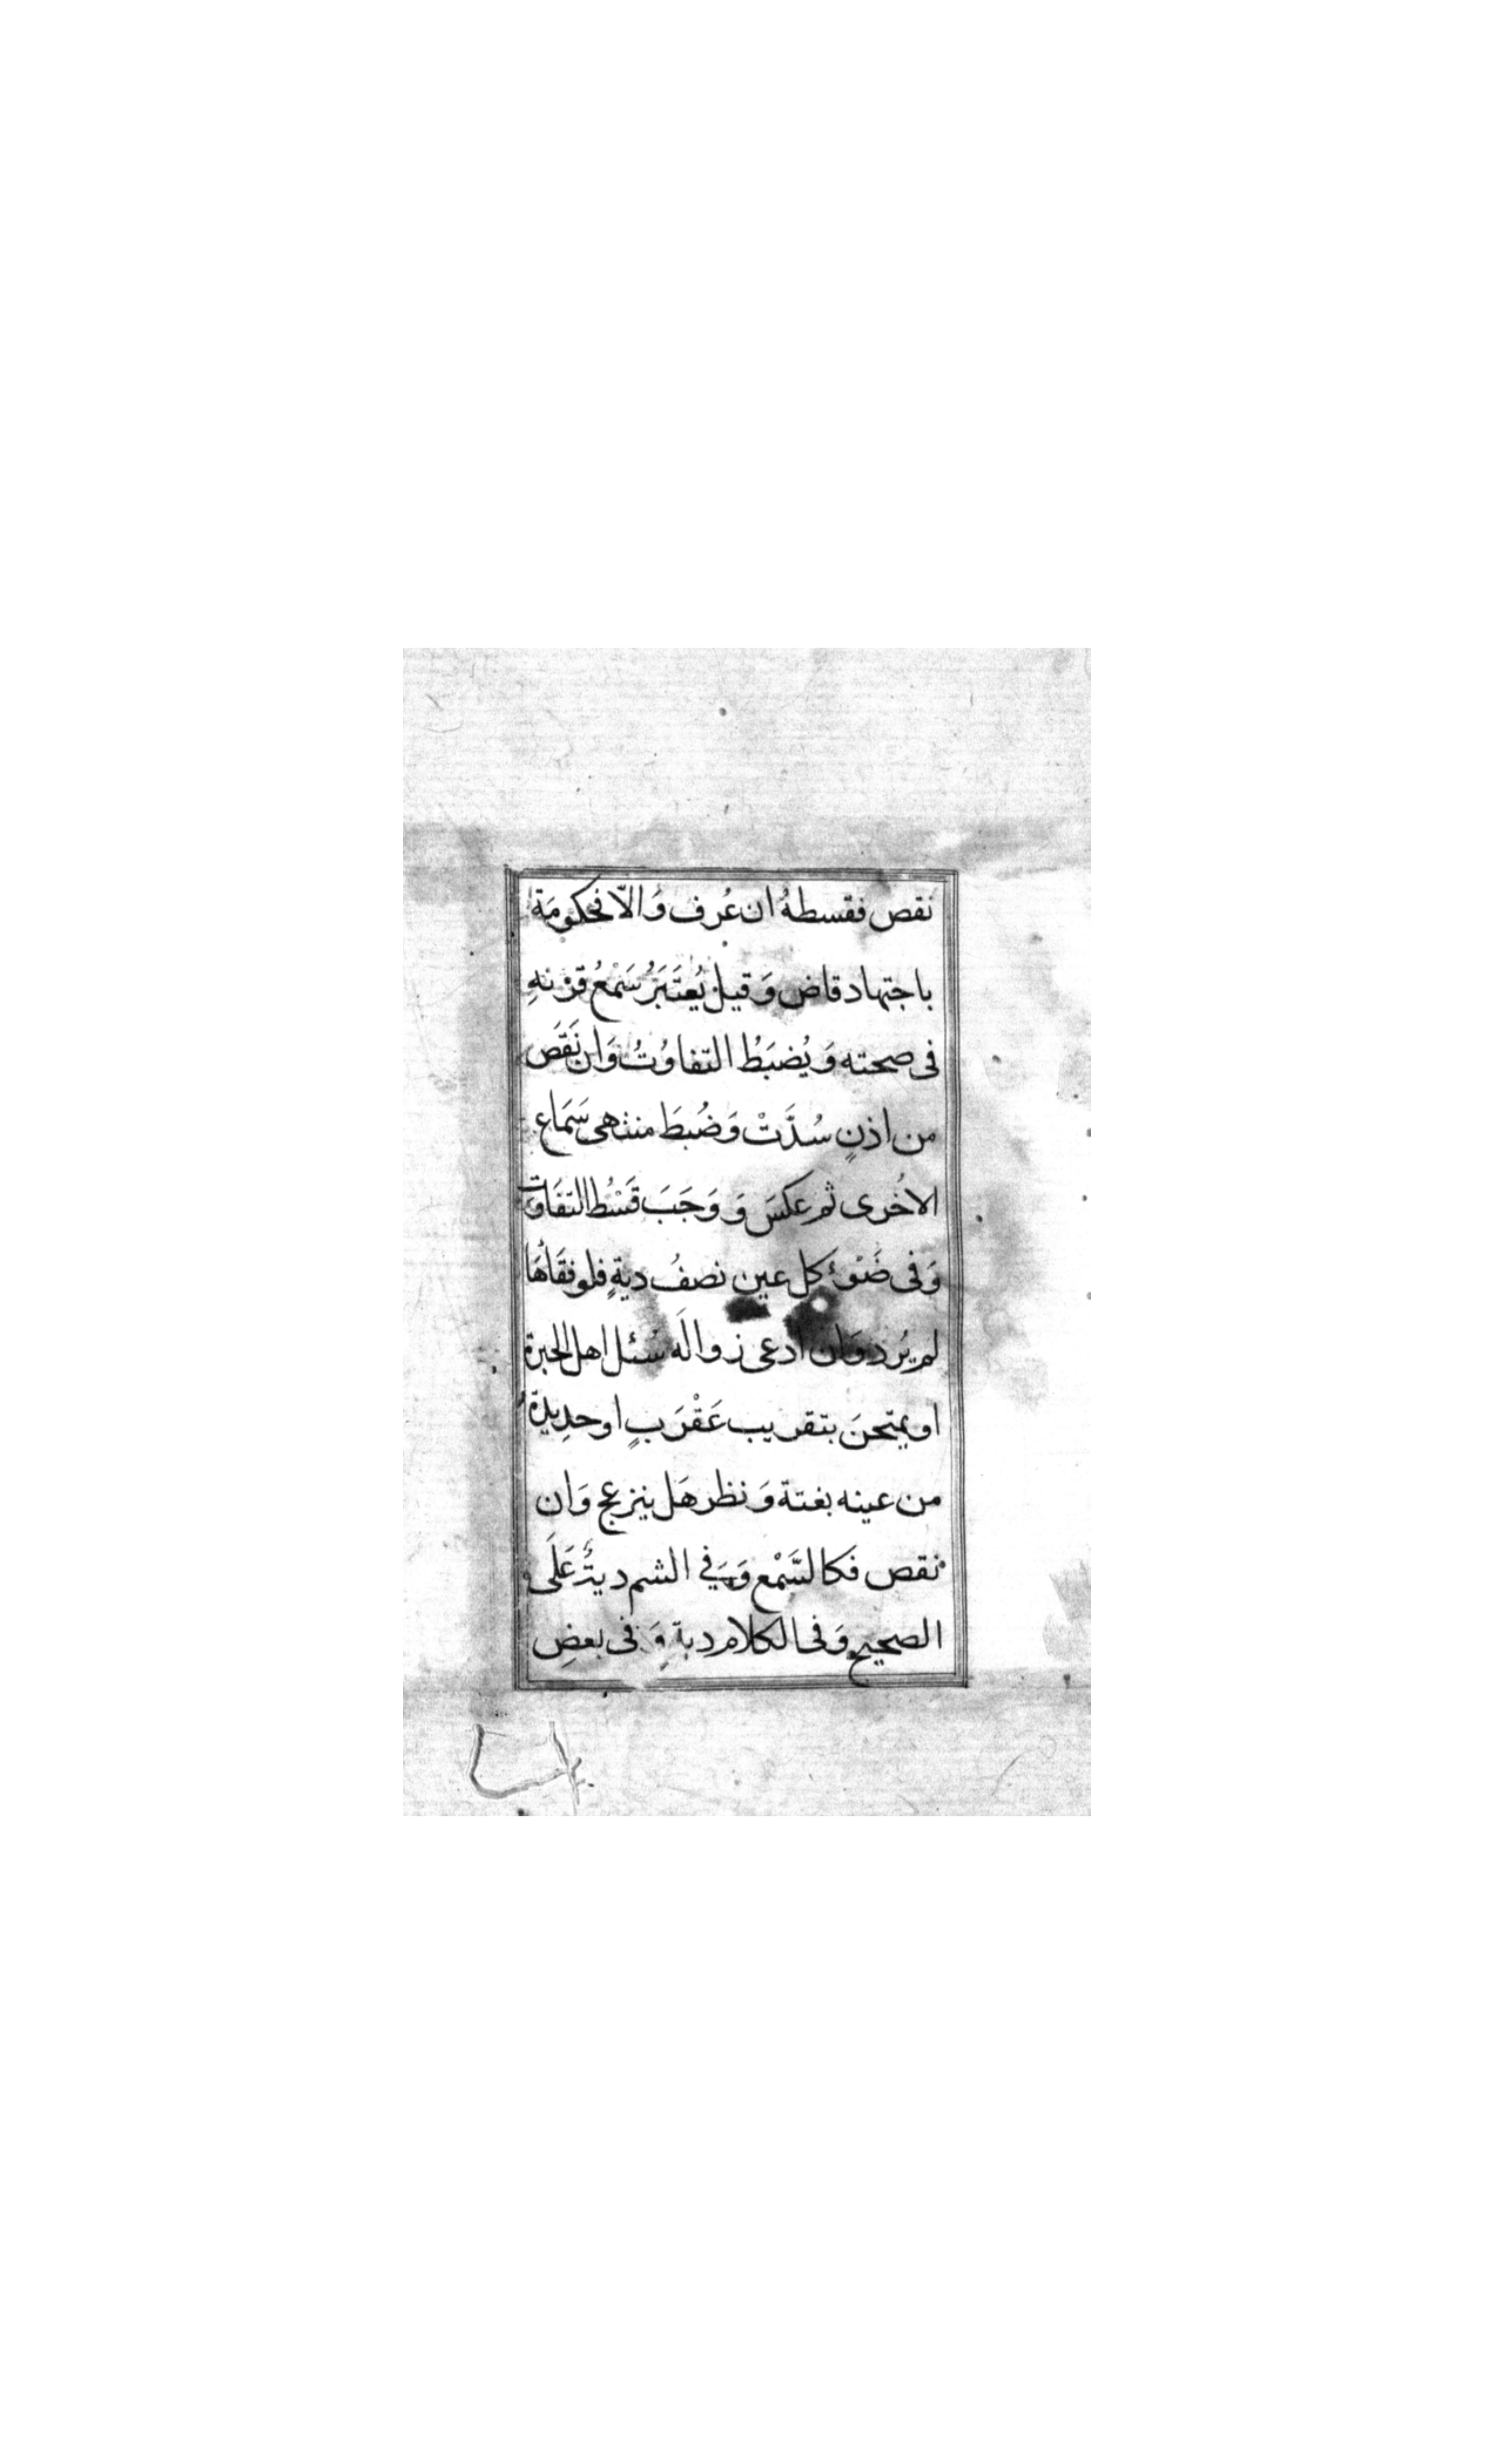 نقص فقسطهُ ان عُرف وَالاّ فحكومَة
باجتهاد قاض وَقيل يُعتَبَرُ سَمْعُ قرْنهِ
فى صحته وَيُضبَطُ التفاوُتُ وَان نَقَصَ
من اذنٍ سُدَّتْ وَضُبطَ منتهى سَمَاع
الاخُرى ثم عكسَ وَ وَجَبَ قَسْطُ التفَاوت
وَفى ضَوْءِ كل عين نصفُ ديةٍ فلو فقَاْهَا
لم يُرد وَان ادعى زوالَه سُئل اهل الخبرة
او يمتحنَ بتقريب عَقْرَبٍ او حدِيدة
من عينه بغتة وَنظر هَل ينزعج وَان
نقص فَكالسَّمْع وَفي الشم ديةٌ عَلَى
الصحيح وَفى الكلام دية وَ فى بعضِ